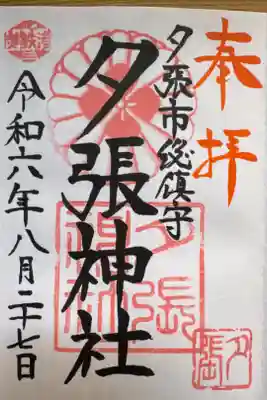 奉拝
夕張市総鎮守
夕張神社
令和六年八月二十七日
夕張神社
夕張